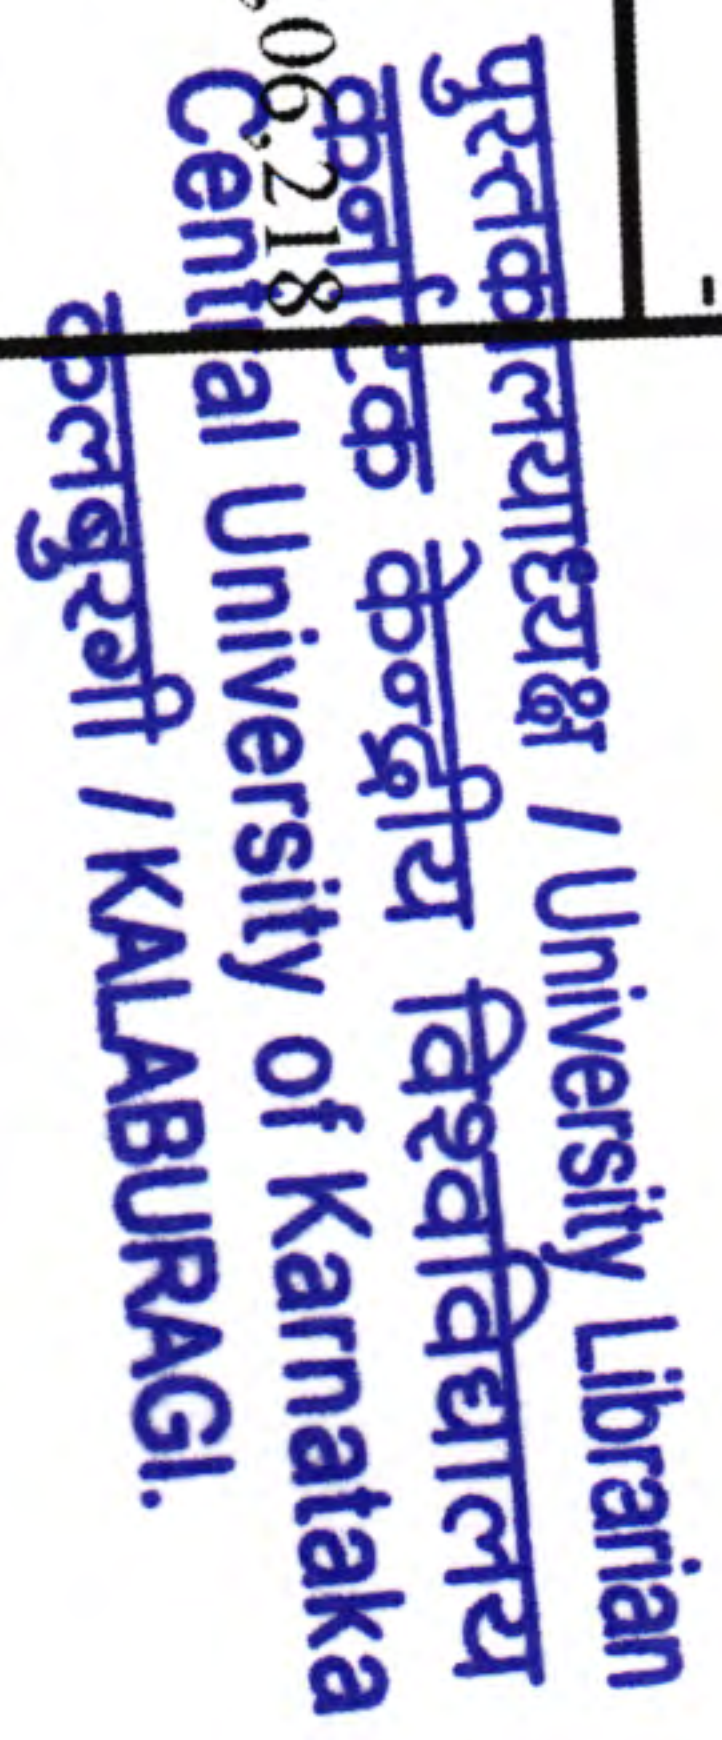 पुस्तकालयाध्यक्ष / University Librarian
कर्नाटक केन्द्रीय विश्वविद्यालय
Central University of Karnataka
कलबुरगी / KALABURAGI.
,06,218
-